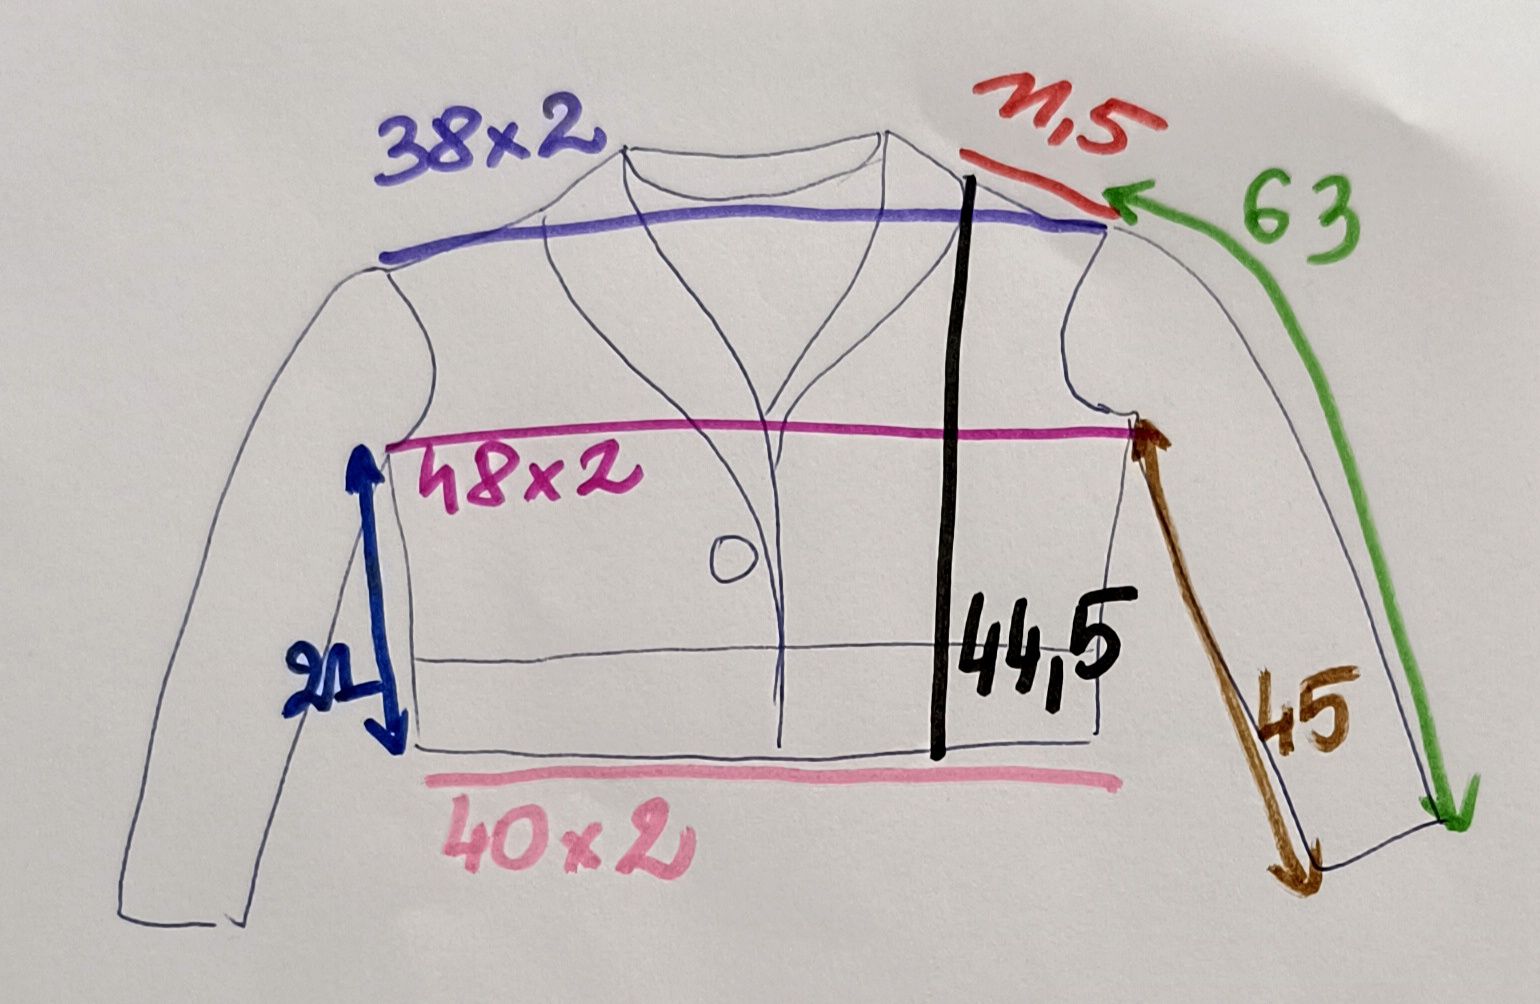 38x2
11,5
63
48x2
44,5
21
45
40x2